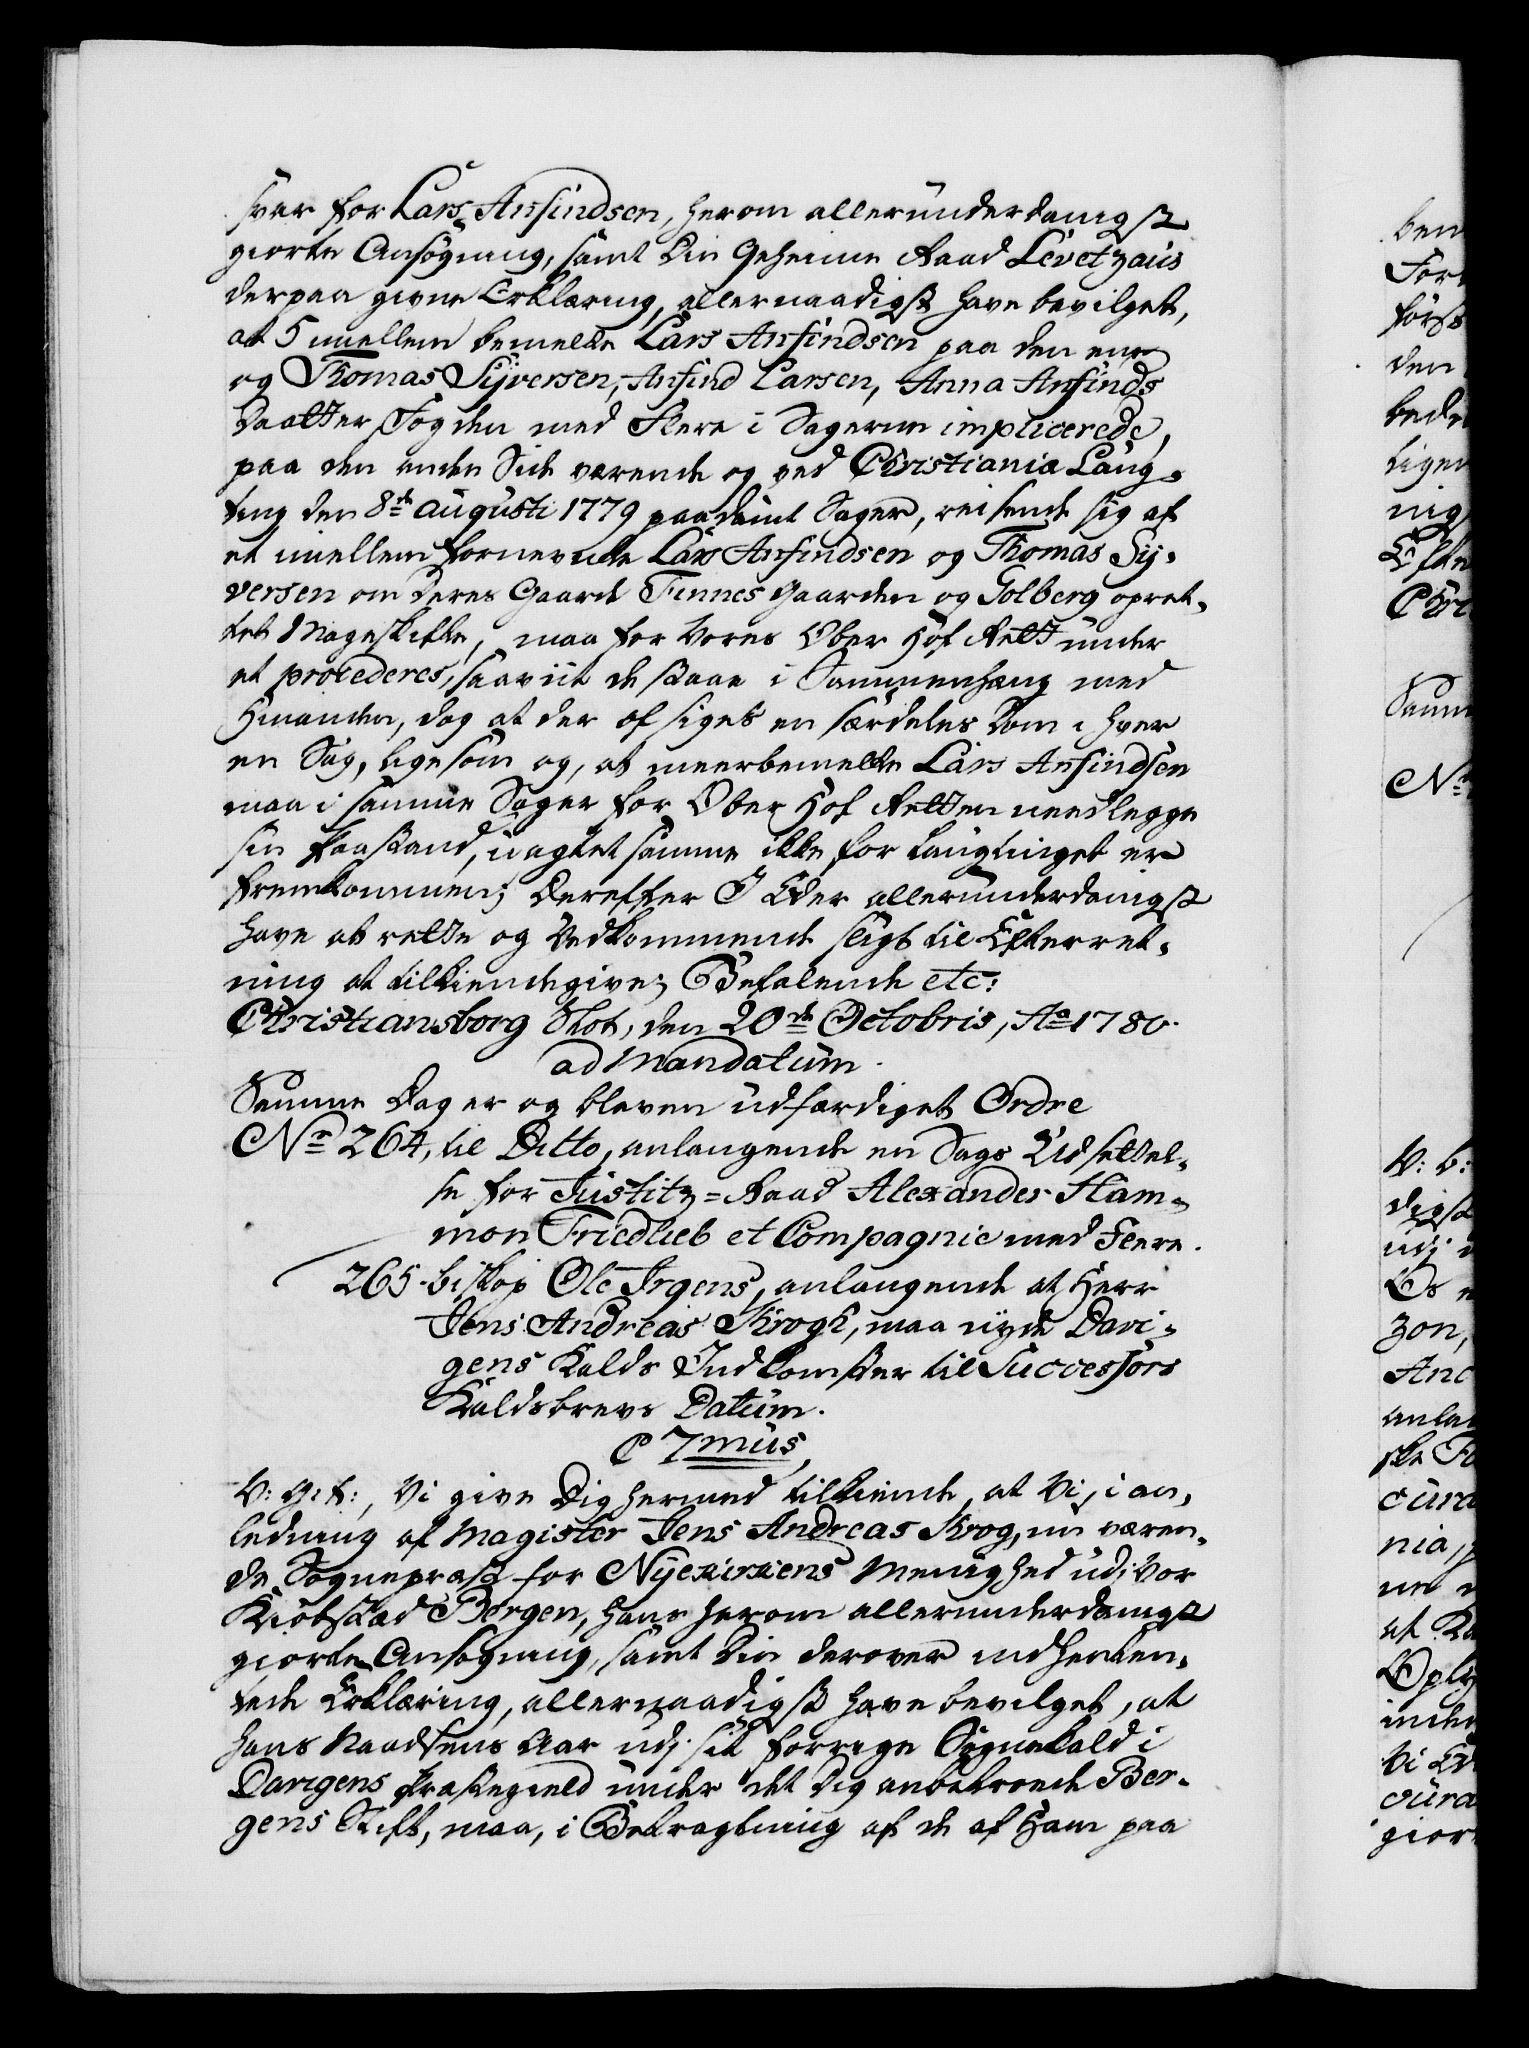 svar for Lars Ansindsen, herom allerunderdanigst
giorte Ansøgning, samt Din Geheime Raad Levetzaus
derpaa givne Erklæring, allernaadigst have bevilget,
at 5 mellem bemelte Lars Anfindsen paa den ene
og Thomas Sijversen, Anfind Larsen, Anna Anfinds
Daatter, Fogden med Flere i Sagerne implicerede,
paa den anden Side værende og ved Christiania Laug-
ting den 8de Augusti 1779 paadømt Sager, reisende sig af
et mellem fornevnde Lars Anfindsen og Thomas Sij-
versen om deres Gaarde Finnes Gaarden og Golberg opret-
tet Mageskifte, maa for Vores Ober Hof Rett under
et procederes, saaviit de staae i Sammenhæng med
hinanden, dog at der afsiges en særdeles Dom i hver
en Sag, ligesom og, at meerbemelte Lars Anfindsen
maa i samme Sager for Ober Hof Retten needlegge
sin Paastand, uagtet samme ikke for Laugtinget er
fremkommen; Derefter I Eder allerunderdanigst
have at rette og Vedkommende sligt til Efterret-
ning at tilkiendegive; Befalende etc:
Christiansborg Slot, den 20de Octobris, Ao 1780.
ad Mandatum.
Samme Dag er og bleven udfærdiget Ordre
No 264, til Ditto, anlangende en Sags Udsettel-
se for Justitz=Raad Alexander Ham-
mon Friedlieb et Compagnie med Fleere.
265. biskop Ole Irgens, anlangende at Herr
Jens Andreas Krogh, maa nyde Davi-
gens Kalds Indkomster til Successors
Kaldsbrevs Datum.
C 7mus
V: G: T:, Vi give Dig hermed tilkiende, at Vi, i an-
ledning af Magister Jens Andreas Krog, nu væren-
de Sognepræst for Nyekirkens Menighed udi vor
Kiøbstad Bergen, hans herom allerunderdanigst
giorte Ansøgning, samt Din derover indhenten-
tede Erklæring, allernaadigst have bevilget, at
hans Naadsens Aar udj sit forrige Sognekald i
Davigens Præstegield under det Dig anbetroede Ber-
gens Stift, maa, i Betragtning af de af Ham paa